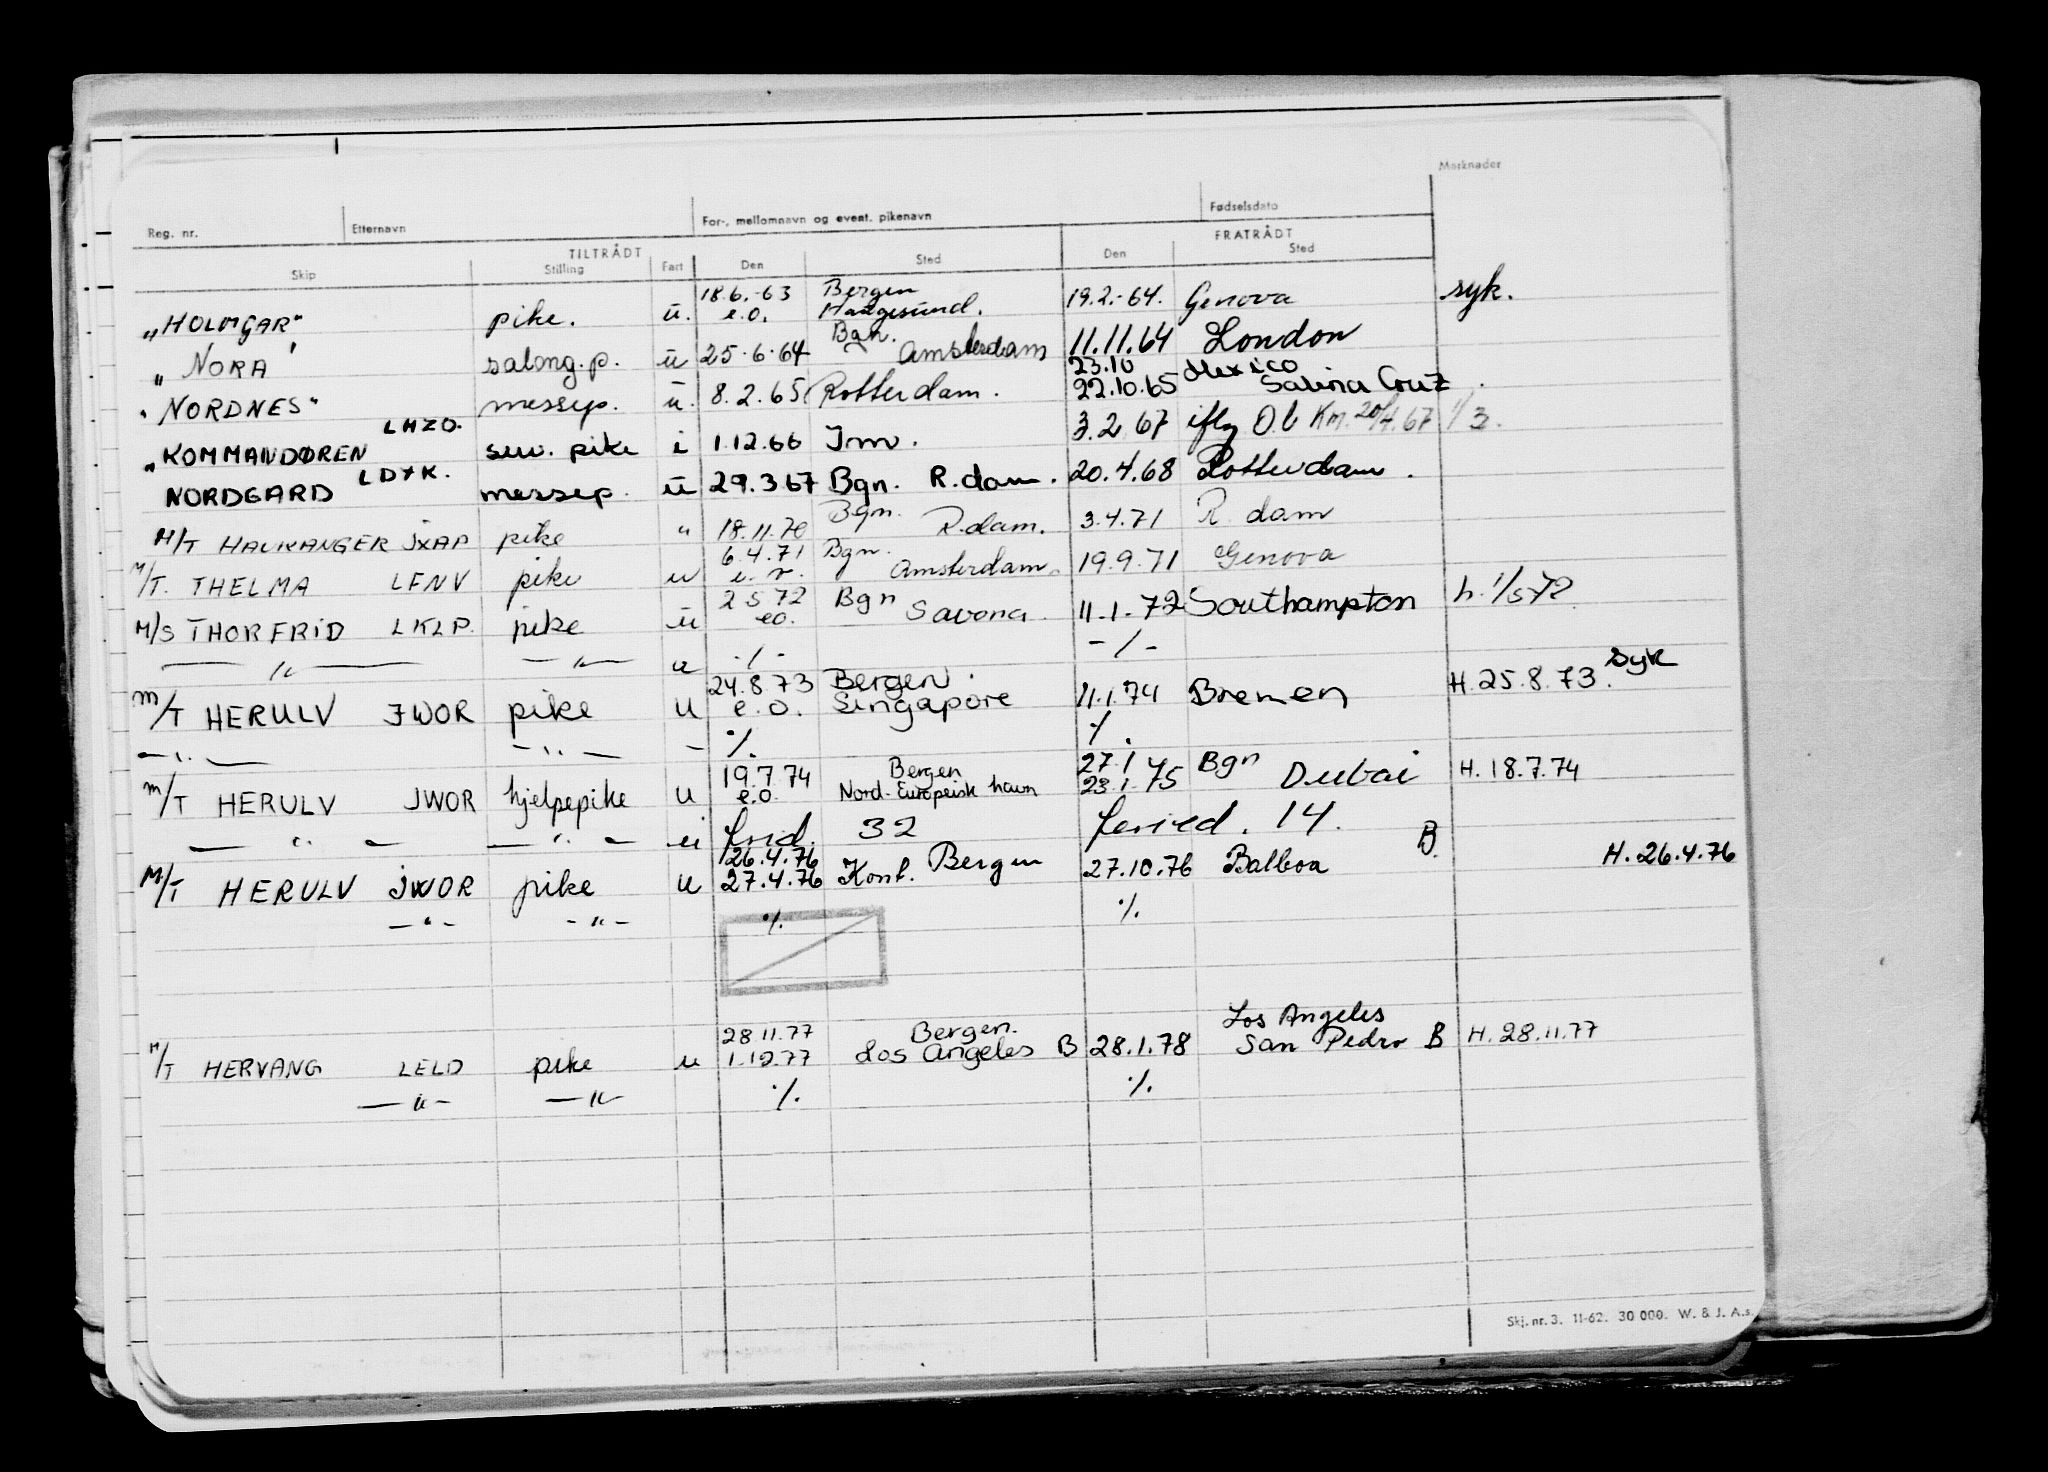 Merknader
Reg. nr. Etternavn For-, mellomnavn og event. pikenavn Fødselsdato
TILTRÅDT FRATRÅDT
Skip Stilling Fart Den Sted Den Sted
18.6.-63 Bergen
„HOLMGAR" pike. u. e.o. Haugesund. 19.2.-64. Genova syk.
Bgn.
„NORA' salong.p. u 25.6.64 Amsterdam 11.11.64 London
23.10 Mexico
"NORDNES" messep. u. 8.2.65 Rotterdam. 22.10.65 Salina Cruz.
LHZO.
„KOMMANDØREN serv. pike i 1.12.66 Im. 3.2.67 ifly Ob Km. 20/4.67 1/3.
LDYK.
NORDGARD messep. u 29.3.67 Bgn. R.dam. 20.4.68 Rotterdam.
Bgn.
M/T HAUKANGER JXAP pike " 18.11.70 R.dam. 3.4.71 R.dam
6.4.71 Bgn.
M/T. THELMA LFNV pike u Amsterdam. 19.9.71 Genova
2 5 72 Bgn
M/S THORFRID LKLP. pike u eo. Savona. 11.1.72 Southampton h. 1/5-72
— " — — " — u -/- -/-
24.8.73 Bergen. Syk
M/T HERULV JWOR pike u e.o. Singapore 11.1.74 Bremen H.25.8.73.
— " — — " — - ./. ./.
19.7.74 Bergen 27.1 Bgn
M/T HERULV JWOR hjelpepike u e.o. Nord-Europeisk havn 23.1.75 Dubai H.18.7.74
— " — — " — 32 14.
26.4.76 Bergen B.
M/T HERULV JWOR pike u 27.4.76 Kont. 27.10.76 Balboa H.26.4.76
— " — — " — ./. ./.
28.11.77 Bergen. Los Angeles
M/T HERVANG LELD pike u 1.12.77 Los Angeles B 28.1.78 San Pedro B H.28.11.77
— " — — " — ./. ./.
Skj. nr. 3. 11-62. 30 000. W. & J. A.s.